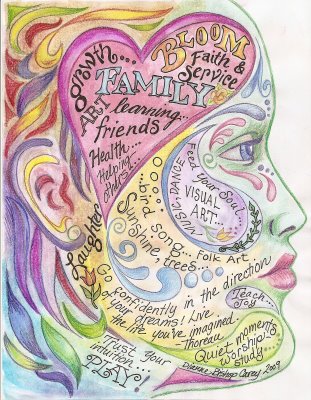 growth...
ART
BLOOM
Faith &
Service
FAMILY
learning...
friends
Health...
Helping
Others...
Laughter
Feed your Soul...
VISUAL
ART...
MUSIC, DANCE
bird song...
Sunshine,
trees...
Folk Art
Go confidently in the direction
of your dreams! Live
the life you've imagined.
Thoreau
Teach...
Joy
Quiet moments
worship...
study...
Trust your
intuition...
PLAY!
Dianne Bishop Carey 2009